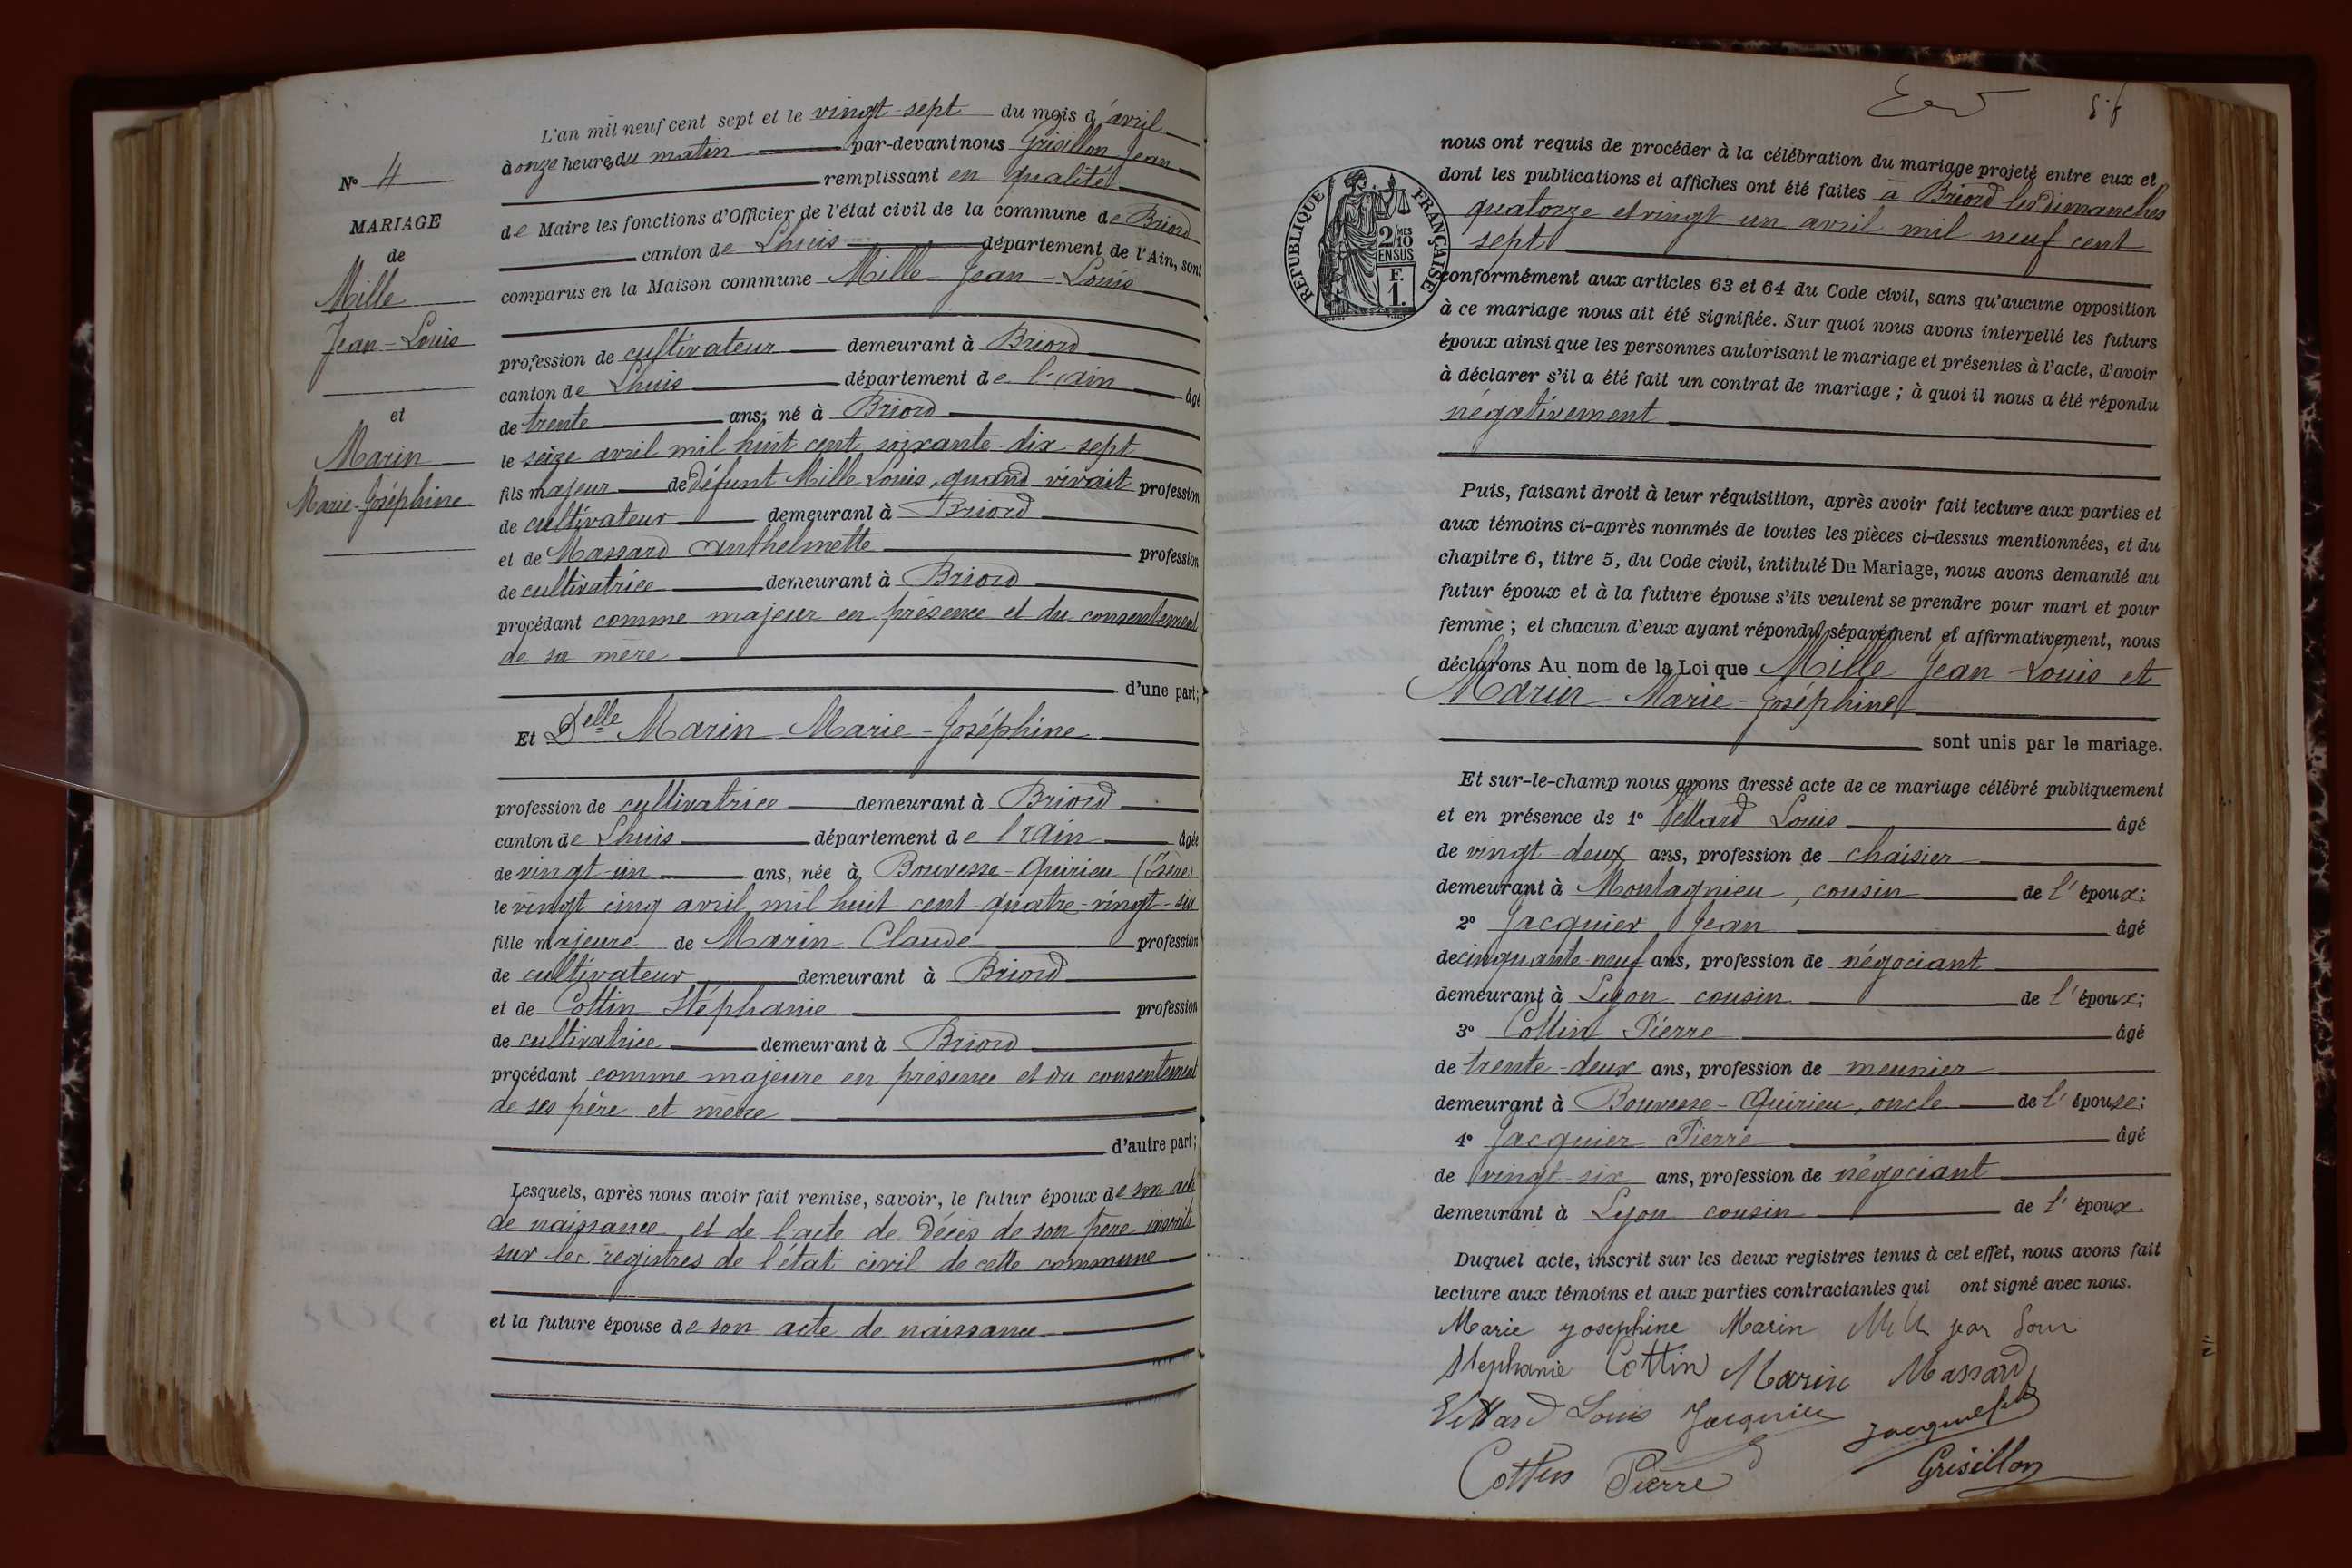 L'an mil neuf cent sept et le vingt-sept du mois d'avril
à onze heures du matin par-devant nous Grisillon Jean
remplissant en qualité
de Maire les fonctions d'Officier de l'état civil de la commune de Briord
canton de Lhuis département de l'Ain, sont
comparus en la Maison commune Mille Jean-Louis
profession de cultivateur demeurant à Briord
canton de Lhuis département de l'ain âgé
de trente ans, né à Briord
le seize avril mil huit cent soixante-dix-sept
fils majeur de défunt Mille Louis, quand vivait profession
de cultivateur demeurant à Briord
et de Massard Anthelmette profession
de cultivatrice demeurant à Briord
procédant comme majeur en présence et du consentement
de sa mère
d'une part;
Et Delle Marin Marie-Joséphine
profession de cultivatrice demeurant à Briord
canton de Lhuis département de l'Ain âgée
de vingt-un ans, née à Bouvesse-Quirieu (Isère)
le vingt cinq avril mil huit cent quatre-vingt-six
fille majeure de Marin Claude profession
de cultivateur demeurant à Briord
et de Cottin Stéphanie profession
de cultivatrice demeurant à Briord
procédant comme majeure en présence et du consentement
de ses père et mère
d'autre part;
Lesquels, après nous avoir fait remise, savoir, le futur époux de son acte
de naissance et de l'acte de décès de son père inscrits
sur les registres de l'état civil de cette commune
et la future épouse de son acte de naissance
N° 4
MARIAGE
de
Mille
Jean-Louis
et
Marin
Marie-Joséphine
nous ont requis de procéder à la célébration du mariage projeté entre eux et
dont les publications et affiches ont été faites à Briord les dimanches
quatorze et vingt-un avril mil neuf cent
sept
conformément aux articles 63 et 64 du Code civil, sans qu'aucune opposition
à ce mariage nous ait été signifiée. Sur quoi nous avons interpellé les futurs
époux ainsi que les personnes autorisant le mariage et présentes à l'acte, d'avoir
à déclarer s'il a été fait un contrat de mariage ; à quoi il nous a été répondu
négativement
Puis, faisant droit à leur réquisition, après avoir fait lecture aux parties et
aux témoins ci-après nommés de toutes les pièces ci-dessus mentionnées, et du
chapitre 6, titre 5, du Code civil, intitulé Du Mariage, nous avons demandé au
futur époux et à la future épouse s'ils veulent se prendre pour mari et pour
femme ; et chacun d'eux ayant répondu séparément et affirmativement, nous
déclarons Au nom de la Loi que Mille Jean-Louis et
Marin Marie-Joséphine
sont unis par le mariage.
Et sur-le-champ nous avons dressé acte de ce mariage célébré publiquement
et en présence de 1° Vettard Louis âgé
de vingt-deux ans, profession de chaisier
demeurant à Montagnieu, cousin de l'époux;
2° Jacquier Jean âgé
de cinquante-neuf ans, profession de négociant
demeurant à Lyon cousin de l'époux;
3° Cottin Pierre âgé
de trente-deux ans, profession de meunier
demeurant à Bouvesse-Quirieu, oncle de l'épouse;
4° Jacquier Pierre âgé
de vingt-six ans, profession de négociant
demeurant à Lyon cousin de l'époux.
Duquel acte, inscrit sur les deux registres tenus à cet effet, nous avons fait
lecture aux témoins et aux parties contractantes qui ont signé avec nous.
Marie yosephine Marin
Stephanie Cottin Marin Massard
Vettard Louis Jacquier
Cottin Pierre Grisillon
RÉPUBLIQUE FRANÇAISE
2 MES
10
EN SUS
F.
1.